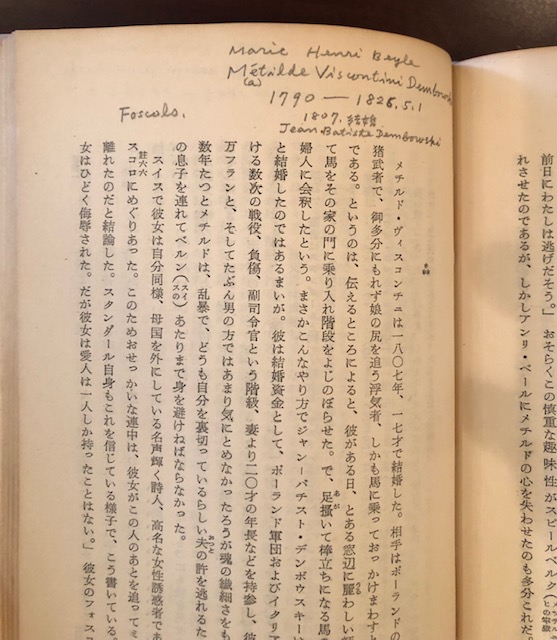 前日にわたしは逃げだそう。」 おそらくの慎重な趣味性がスピールベルク
れさせたのであるが、しかしアンリ・ベールにメチルドの心を失わせたのも多分これだ。
Marie Henri Beyle
Métilde Viscontini Dembowski
(a)
1790 — 1825.5.1
1807. 結婚
Jean Batiste Dembowski
Foscolo.
メチルド・ヴィスコンチニは一八〇七年、一七才で結婚した。相手はポーランドの
猪武者で、御多分にもれず娘の尻を追う浮気者、しかも馬に乗っておっかけまわす
である。というのは、伝えるところによると、彼がある日、とある窓辺に麗わしい
て馬をその家の門に乗り入れ階段をよじのぼらせた。で、足搔いて棒立ちになる馬
婦人に会釈したという。まさかこんなやり方でジャン―バチスト・デンボウスキー
と結婚したのではあるまいが。彼は結婚資金として、ポーランド軍団およびイタリア
ける数次の戦役、負傷、副司令官という階級、妻より二〇才の年長などを持参し、彼
万フランと、そしてたぶん男の方ではあまり気にとめなかったろうが魂の繊細さをも
数年たつとメチルドは、乱暴で、どうも自分を裏切っているらしい夫の許を逃れるた
の息子を連れてベルン(スイスの)あたりまで身を避けねばならなかった。
スイスで彼女は自分同様、母国を外にしている名声輝く詩人、高名な女性誘惑者であ
註六六
スコロにめぐりあった。このためおせっかいな連中は、彼女がこの人のあとを追ってミ
離れたのだと結論した。スタンダール自身もこれを信じている様子で、こう書いている。
女はひどく侮辱された。だが彼女は愛人は一人しか持ったことはない。」彼女のフォスコ